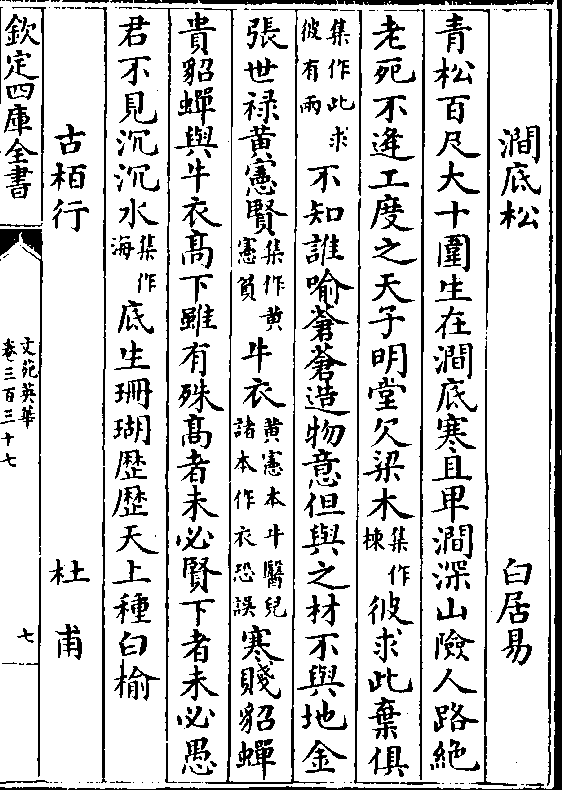 澗底松　白居易
青松百尺大十圍生在澗底寒且卑澗深山險人路絶
老死不逢工度之天子明堂欠梁木集作棟彼求此棄俱
集作此求彼有兩不知誰喻蒼蒼造物意但與之材不與地金
張世禄黄憲賢集作黄憲貧牛衣黄憲本牛醫兒諸本作衣恐誤寒賤貂蟬
貴貂蟬與牛衣髙下雖有殊髙者未必賢下者未必愚
君不見沉沉水集作海底生珊瑚歴歴天上種白榆
古栢行　杜甫
欽定四庫全書
文苑英華
卷三百三十七
七